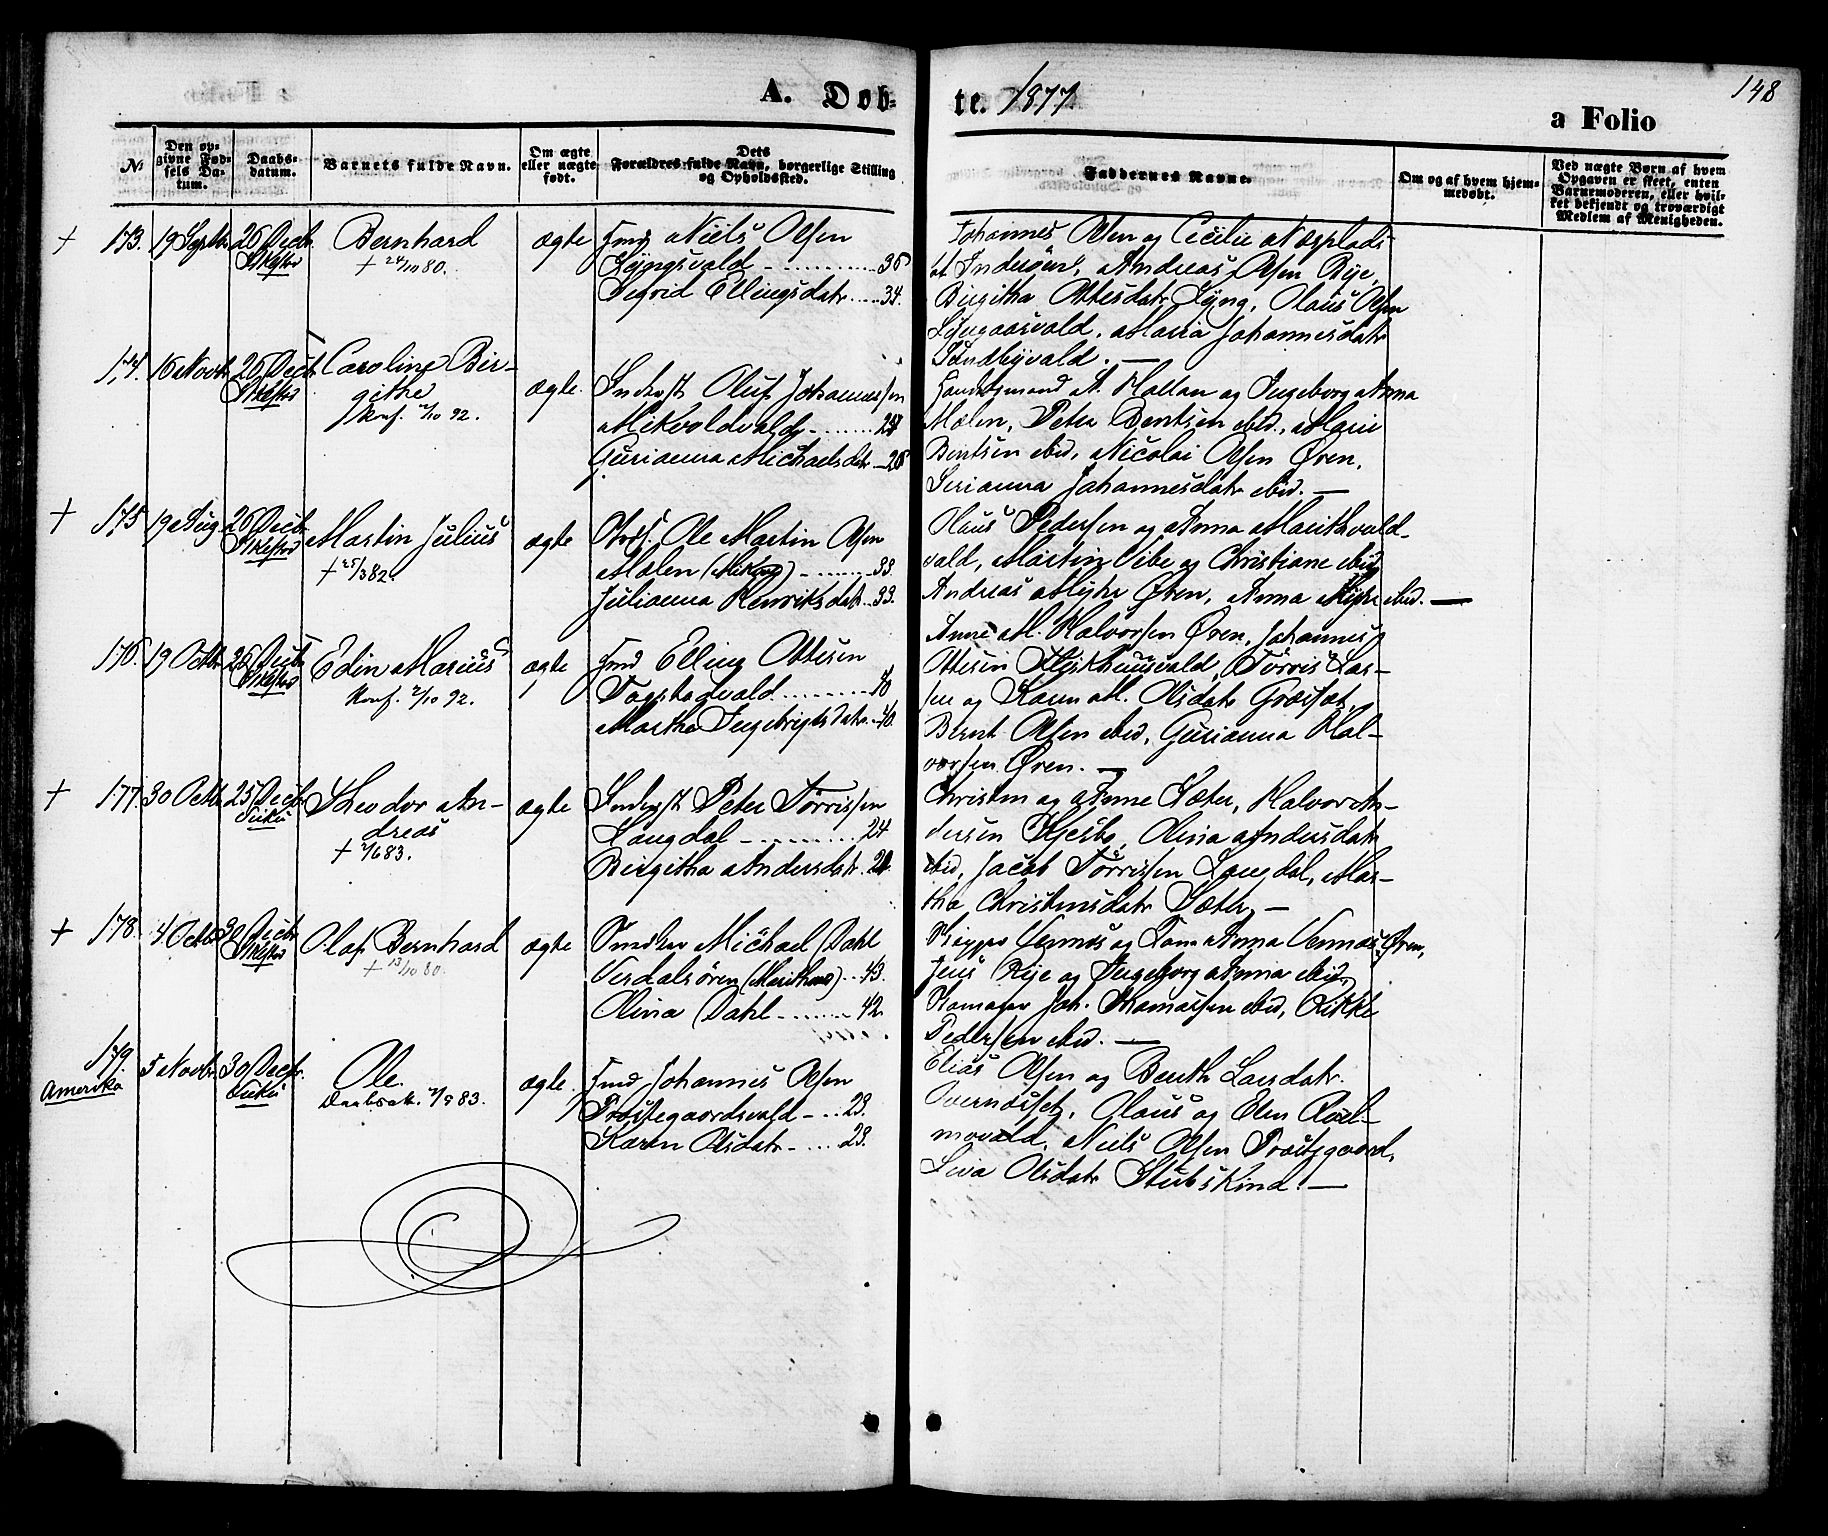 148
A. Døb-
te. 1877
a Folio
No
Den op-
givne Fød-
sels Da-
tum.
Daabs-
datum.
Barnets fulde Navn.
Om ægte
eller uægte
født.
Dets
Forældres fulde Navn, borgerlige Stilling
og Opholdssted.
Faddernes Navne.
Om og af hvem hjem-
medøbt.
Ved uægte Børn af hvem
Opgaven er skeet, enten
Barnemoderen, eller hvil-
ket bekjendt og troværdigt
Medlem af Menigheden.
+ 173. 19 Septbr 26 Decb. Bernhard ægte Fmd Niels Olsen
+ 24/10 80.
Lyngsvald 36
Sigrid Ellingsdatr 34.
Johannes Olsen og Cecilie Næsplads-
Inderøen, Andreas Olsen Rye,
Birgitha Ottesdatr Lyng, Olaus Olsen
Lyngaasvald, Maria Johannesdatr
Sundbyvald. —
174. 16 Novb. 26 Decb. Caroline Bir-
githe
Konf. 2/10 92.
ægte Inderst Oluf Johannessen
Mikvoldvald 24
Gurianna Michaelsdatr 26
Handelsmand A. Hallan og Ingeborg Anna
Mælen, Peter Bentsen ibid, Marie
Bentsen ibid, Nicolai Olsen Øren,
Serianna Johannesdatr ibid. —
+ 175 19 Aug. 26 Decb. Martin Julius
+ 25/3 82.
ægte Ole Martin Olsen
Mælen 33.
Julianna Henriksdatr 33.
Olaus Pedersen og Anna
vald, Martin Vibe og Christiane ibid
Andreas Myhr Øren, Anna Myhr ibid. —
176. 19 Octb. 26 Decb. Edin Marius
Konf. 2/10 92.
ægte Fmd Elling Ottesen
Fogstadvald 40
Martha Ingebrigtsdatr. 40.
Anne M. Halvorsen Øren, Johannes
Ottesen Torris Las-
sen og Karen M. Olsdatr Græset,
Bernt Olsen ibid, Gurianna Hal-
vorsen Øren. —
+ 177. 30 Octb. 25 Decb. Theodor An-
Vuku
dreas
+ 2/6 83.
ægte Inderst Peter Torrissen
Langdal 24
Birgitha Andersdtr. 24.
Christen og Anne Sæter, Halvor An-
dersen , Olina Andersdatr
ibid, Jacob Torrissen Langdal, Mar-
tha Christensdatr Sæter, —
+ 178. 4 Octb. 30 Decb. Olaf Bernhard
+ 13/10 80.
ægte Snedker Michael Dahl
Verdalsøren 43.
Olina Dahl 42.
Skipper Vennes og Kone Anna Vennes Øren,
Jens Rye og Ingeborg Anna ibid,
Skomager Joh. Thomassen ibid, Rikke
Pedersen ibid. —
179. 5 Novbr. 30 Decbr. Ole.
Amerika
Vuku
Daabsatt. 2/5 83.
ægte. Fmd Johannes Olsen
Præstegaardsvald 23.
Karen Olsdatr 23.
Elias Olsen og Berith Larsdatr.
Overnæsset, Olaus og Elen Roel-
movald, Niels Olsen Præstegaard,
Olsdatr Stubskind. —